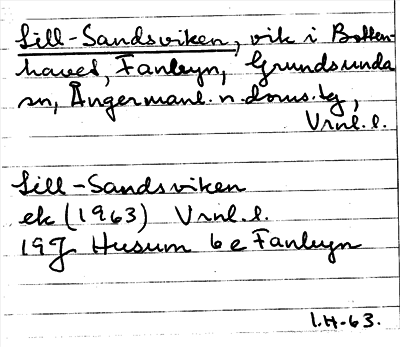 Lill-Sandsviken, vik i Botten-
havet, Fanbyn, Grundsunda
sn, Ångermanl. n. doms.tg,
Vrnl. l.
Lill-Sandsviken
ek (1963) Vrnl. l.
19J Husum 6 e Fanbyn
I.H-63.